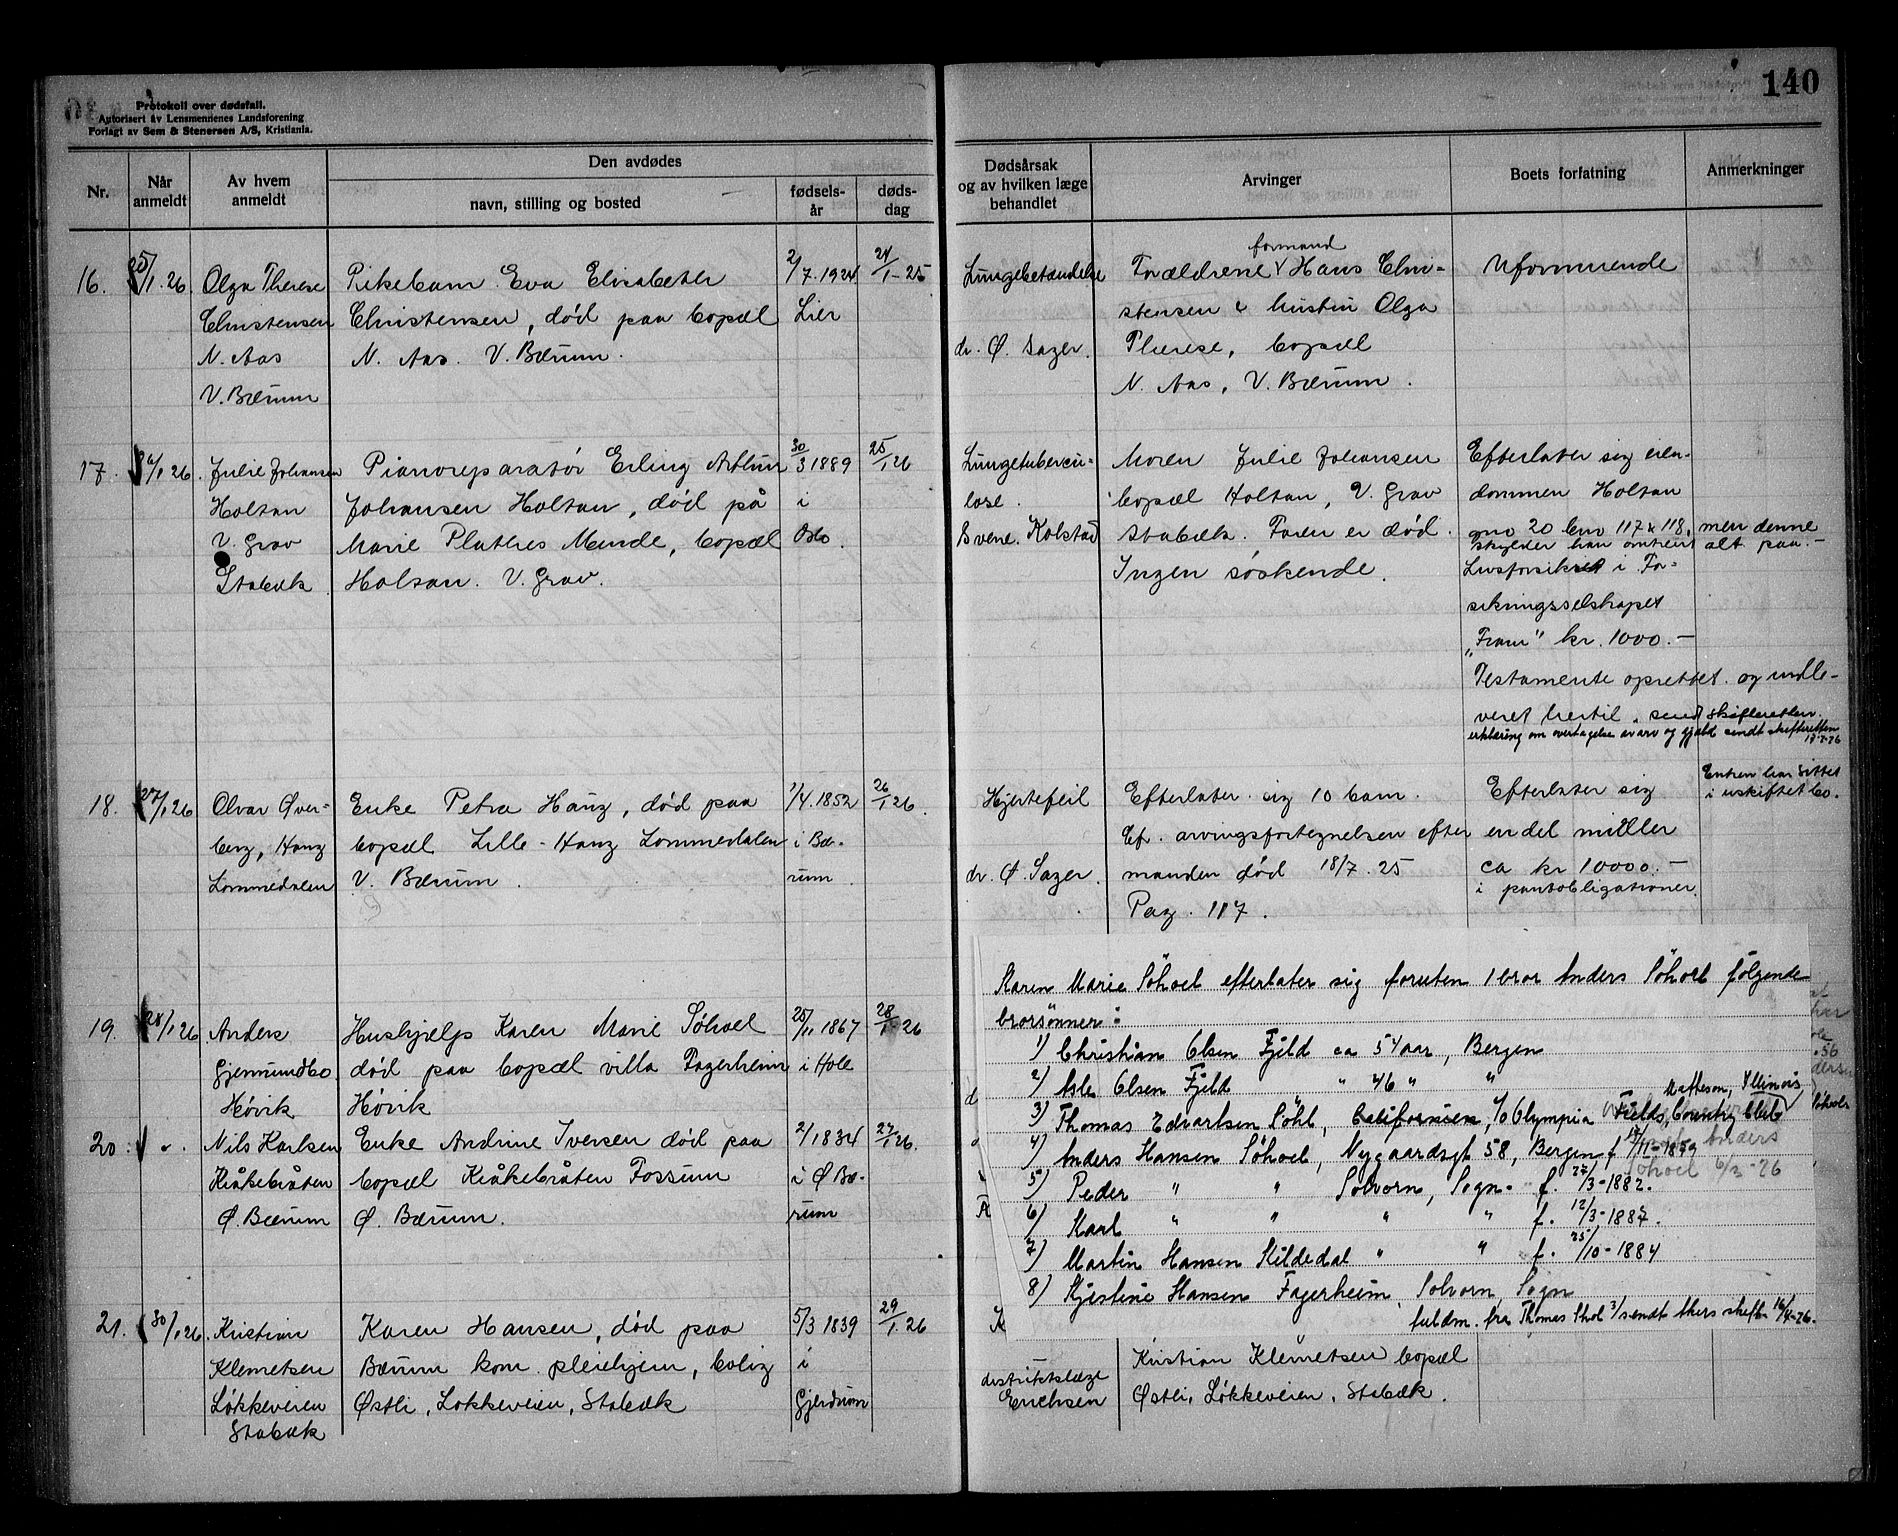 140
Protokoll over dødsfall.
Autorisert av Lensmennenes Landsforening
Forlagt av Sem & Stenersen A/S, Kristiania.
Nr.
Når anmeldt
Av hvem anmeldt
Den avdødes
navn, stilling og bosted
fødsels-år
døds-dag
Dødsårsak og av hvilken læge behandlet
Arvinger
Boets forfatning
Anmerkninger
16.
25/1.26
Olga Therese
Christensen
N. Aas
V. Bærum
Pikebarn Eva Elisabeth
Christensen, død paa bopæl
N. Aas. V. Bærum.
2/7.1924
Lier
24/1-25
Lungebetændelse
dr. Ø. Sager.
formand
Forældrene Hans Chri-
stensen & hustru Olga
Therese, bopæl
N. Aas, V. Bærum.
Uformuende
17.
26/1 26
Julie Johansen
Holtan
V. Grav
Stabæk
Pianoreparatør Erling Arthur
Johansen Holtan, død på
Marie Plathes Minde, bopæl
Holtan. V. Grav.
30/3 1889
i
Oslo.
25/1 26
Lungetubercu-
lose.
Svene. Kolstad
Moren Julie Johansen
bopæl Holtan, V. Grav
Stabæk. Faren er død.
Ingen søskende.
Efterlater sig eien-
dommen Holtan
gno 20 bno 117 & 118, men denne
skylder han omtrent alt paa.-
Livsforsikret i For-
sikringsselskapet
"Fram" kr. 1000.-
Testamente oprettet og indle-
veret hertil. sendt skifteretten.
erklæring om overtagelse av arv og gjæld sendt skifteretten
18.
27/1 26
Olvar Øver-
berg, Haug
Lommedalen
Enke Petra Haug, død paa
bopæl Lille-Haug Lommedalen
V. Bærum.
1/4.1852
i Bæ-
rum.
26/1 26
Hjertefeil
dr. Ø. Sager.
Efterlater sig 10 barn.
Cfr. arvingsfortegnelsen efter
manden død 18/7.25
Pag. 117.
Efterlater sig
en del midler
ca kr 10000.-
i pantobligationer.
Enken har sittet
i uskiftet bo.
19.
28/1 26
Anders
Gjermundbo
Høvik
Hushjælp Karen Marie Söhoel
død paa bopæl villa Fagerheim
Høvik
25/11 1867
i Hole
28/1 26
20.
Nils Karlsen
Kråkebråten
Ø. Bærum
Enke Andrine Iversen død paa
bopæl Kråkebråten Fossum
Ø. Bærum.
2/1 1834
i Ø Bæ-
rum
27/1 26.
21.
30/1 26
Kristian
Klemetsen
Løkkeveien
Stabæk
Karen Hansen, død paa
Bærum kom. pleiehjem, bolig
Østli, Løkkeveien, Stabæk
5/3 1839
i
Gjerdrum
29/1.26
distriktslæge
Erichsen
Kristian Klemetsen bopæl
Østli, Løkkeveien, Stabæk.
Karen Marie Söhoel efterlater sig foruten 1 bror Anders Söhoel følgende
brorsönner:
1) Christian Olsen Fjeld ca 54 aar, Bergen
2) Asle Olsen Fjeld " 46 " "
Matteson, Illinois
3) Thomas Edvartsen Söhl, Californien, c/o Olympia Fields, Country Club
4) Anders Hansen Söhoel, Nygaardsgt 58, Bergen f. 17/11-1879
5) Peder " " Solvorn, Sogn. f. 27/3-1882.
6) Karl " " " " f. 12/3-1887.
7) Martin Hansen Kildedal " " f. 25/10-1884
8) Kjestine Hansen Fagerheim, Solvorn, Sogn
Anders
Söhoel 6/2-26